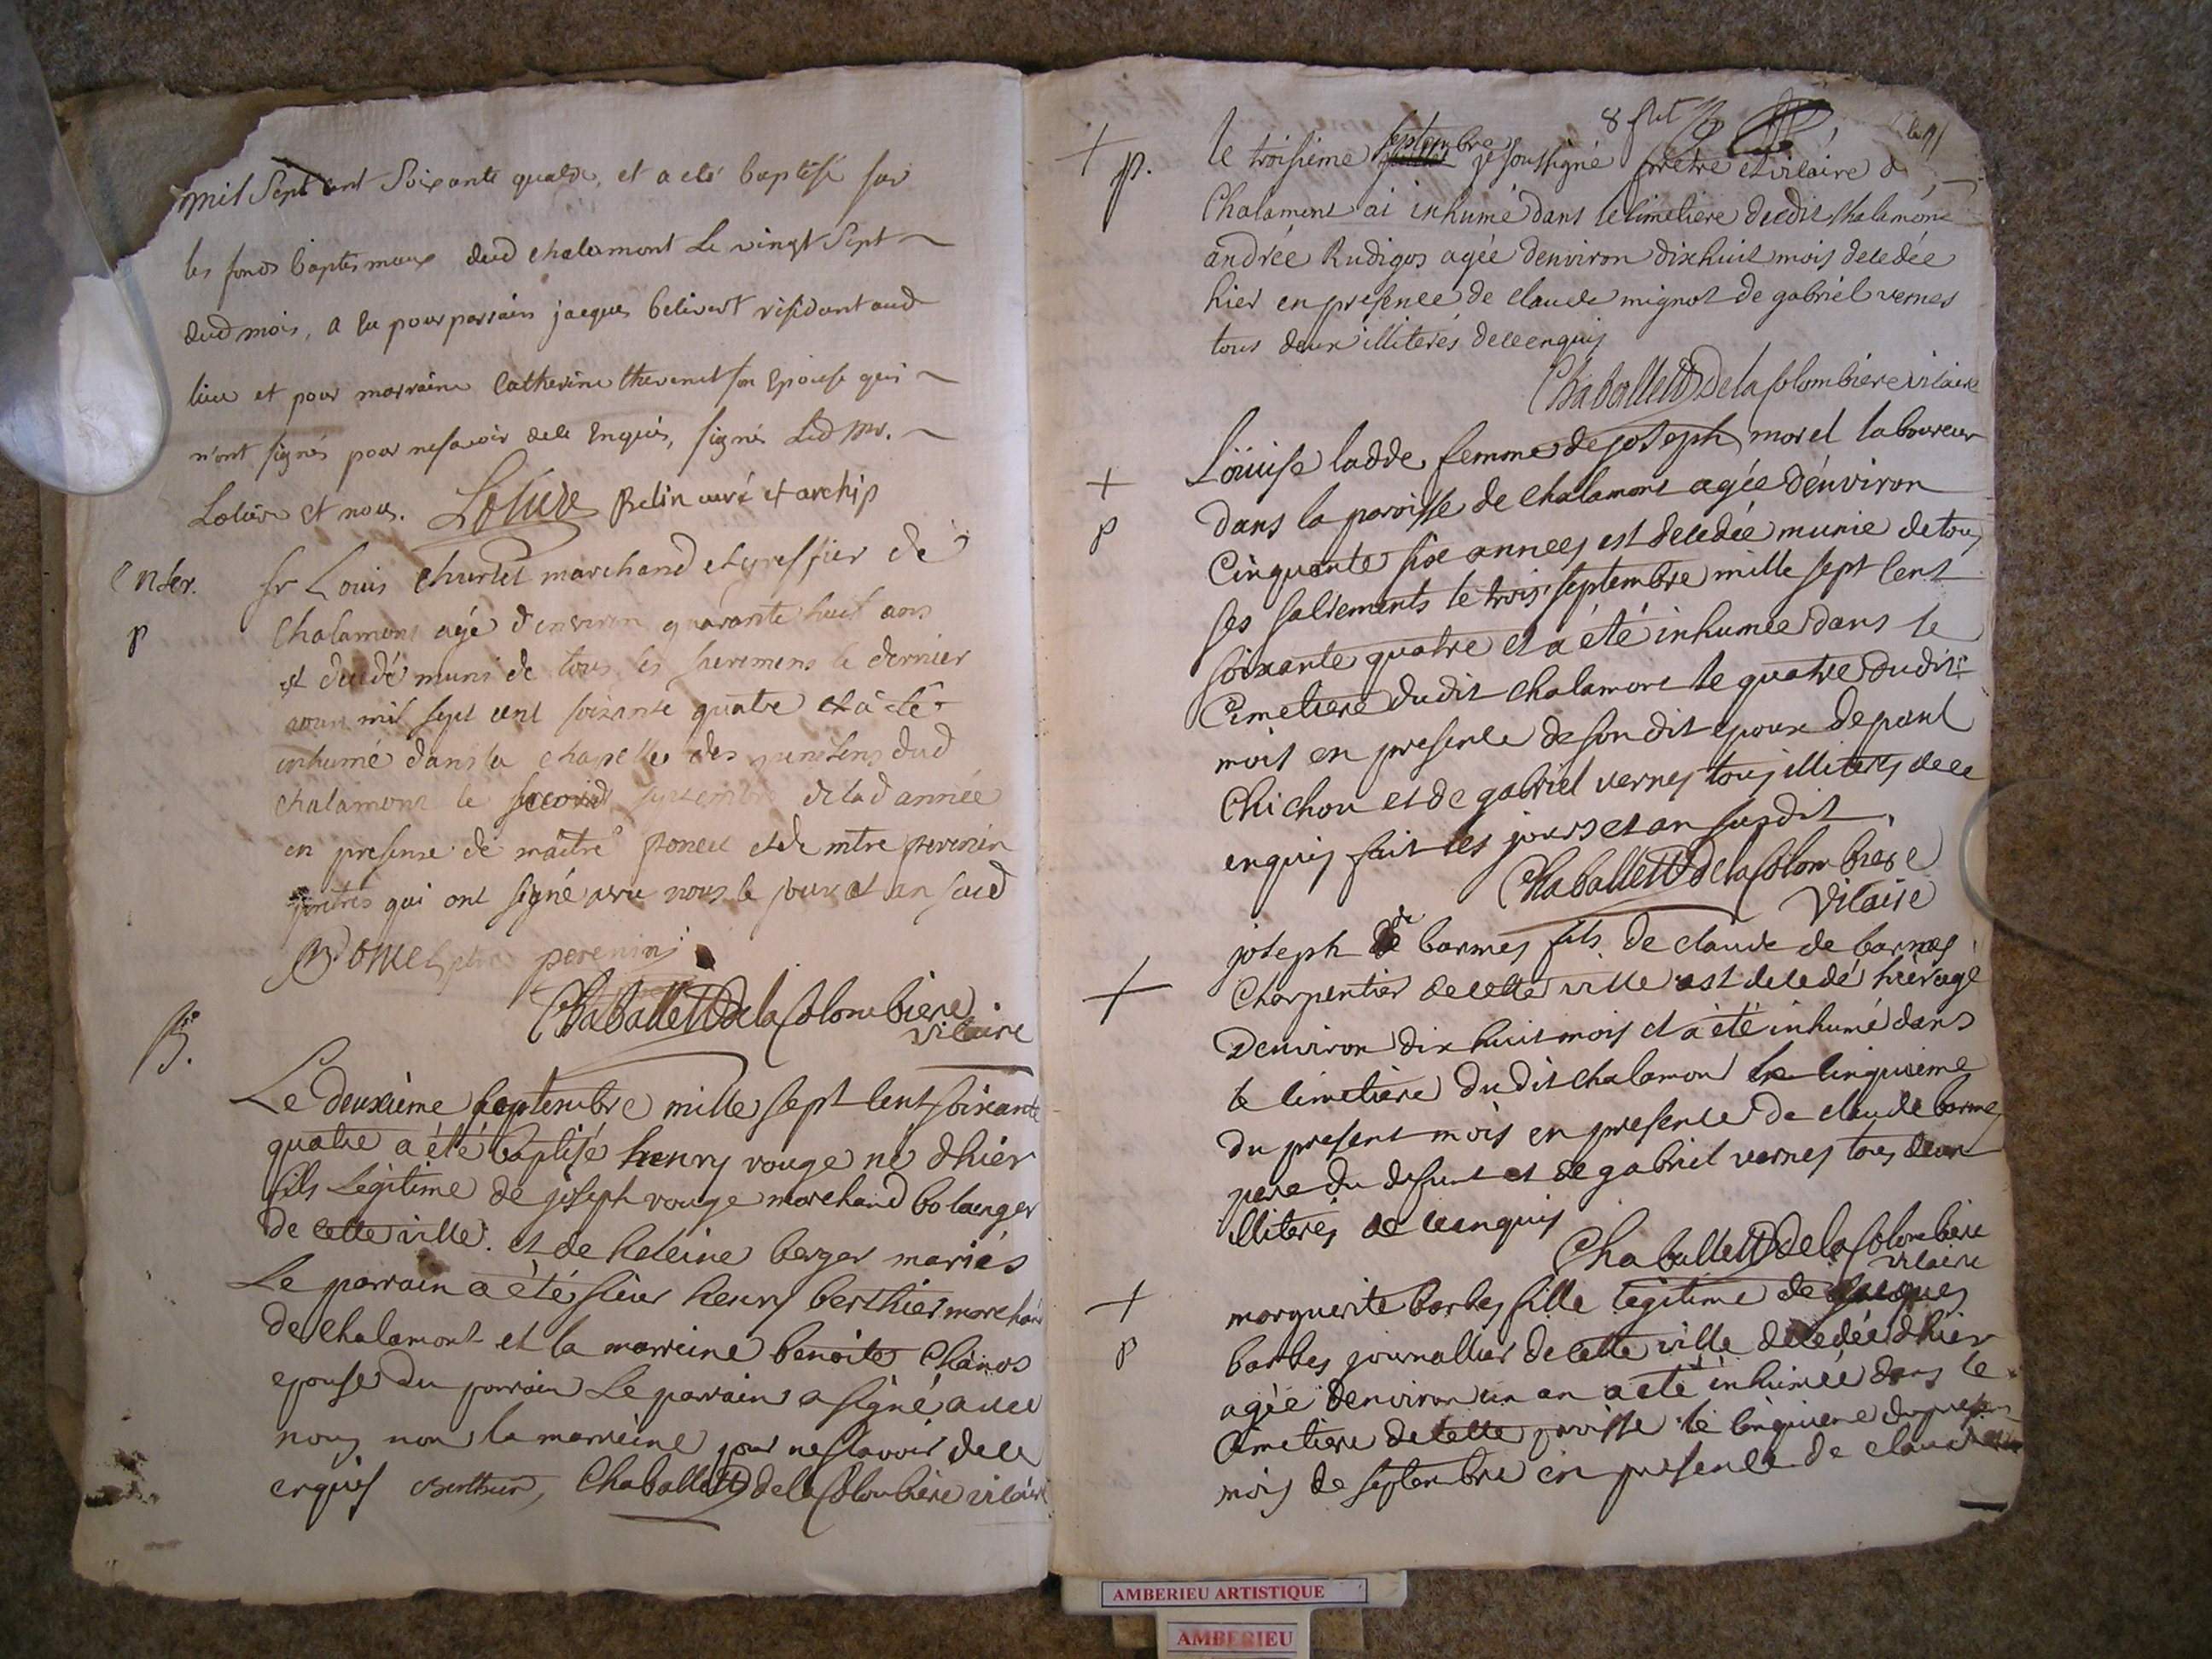 mil Sept cent Soixante quatre, et a eté baptisé sur
les fonds baptismaux dud chalamont Le vingt Sept
dud mois, a Eu pour parrain jacques belivert residant aud
lieu et pour marraine Catherine thevenet son Epouse qui
n'ont signés pour ne savoir de ce Enquis, signé Led Mr.
et nous. Belin curé et archip
Enter. sr Louis marchand et greffier de
P Chalamont agé d'environ quarante huit ans
est decedé muni de tous les sacremens le dernier
aoust mil sept cent soixante quatre et a eté
inhumé dans la chapelle des penitens dud
chalamont le second septembre de lad année
en presense de maitre poncet et de mtre perenin
pretres qui ont signé avec nous le jour et an sud
poncet ptre perenin
Chaballett de la Colombiere
vicaire
B. Le deuxieme septembre mille sept cent soixante
quatre a été baptisé henry rouge né d'hier
fils Légitime de joseph rouge marchand bolanger
de cette ville. et de heleine berger mariés
Le parrain a été sieur henry berthier marchand
de chalamont et la marreine benoite Chanos
epouse du parrain Le parrain a signé avec
nous non la marreine pour ne sçavoir de ce
enquis berthier, Chaballett de la Colombiere vicaire
8 sept
+ p. le troisieme septembre je soussigné pretre et vicaire de
Chalamont ai inhumé dans le cimetiere dudit chalamont
andrée Rudigos agée d'environ dix huit mois decedée
hier en presence de claude mignot de gabriel vernes
tous deux illiterés de ce enquis
Chaballett de la Colombiere vicaire
+ Loüise ladde femme de joseph morel laboureur
p dans la paroisse de chalamont agée d'environ
Cinquante six années est decedée munie de tous
ses sacrements le trois septembre mille sept cent
soixante quatre et a été inhumée dans le
Cimetiere dudit chalamont le quatre dudit
mois en presence de son dit epoux de paul
Chichou et de gabriel vernes tous illiterés de ce
enquis fait les jours et an susdit.
Chaballett de la Colombiere
vicaire
+ joseph de barmes fils de claude de barmes
Charpentier de cette ville est decedé hier agé
d'environ dix huit mois et a été inhumé dans
le cimetiere dudit chalamon le cinquieme
du present mois en presence de claude barmes
pere du defunt et de gabriel vernes tous deux
illiterés de ce enquis
Chaballett de la Colombiere
vicaire
+ marguerite barbes fille legitime de jacques
p barbes journallier de cette ville decedée d'hier
agée d'environ un an a eté inhumée dans le
Cimetiere de cette paroisse le cinquieme du present
mois de septembre en presence de claude
AMBERIEU ARTISTIQUE
AMBERIEU